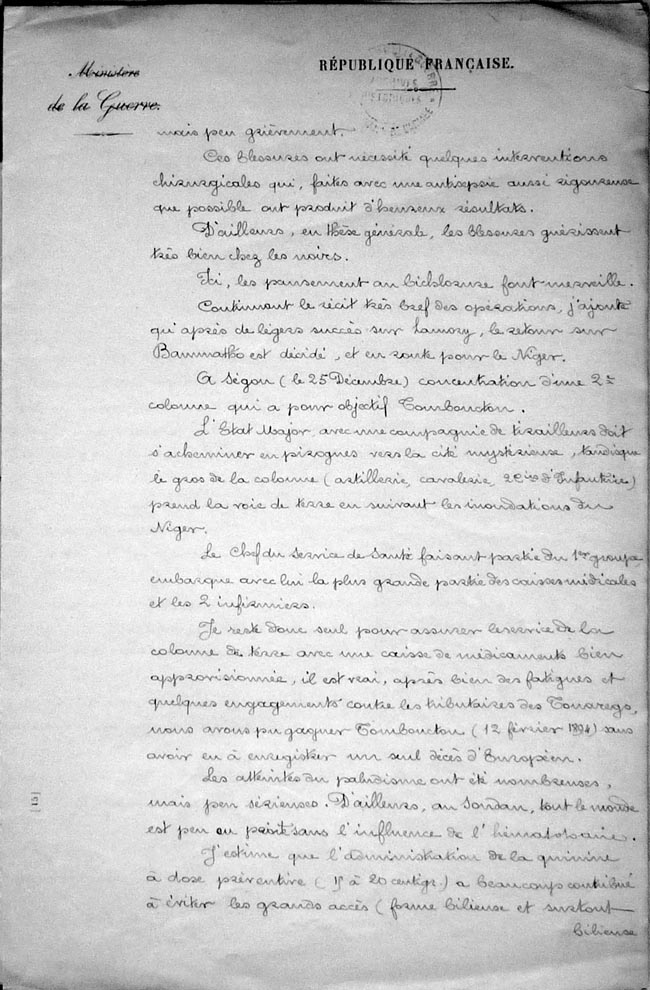 Ministère
de la Guerre.
RÉPUBLIQUE FRANÇAISE.
mais peu grièvement.
Ces blessures ont nécessité quelques interventions
chirurgicales qui, faites avec une antisepsie aussi rigoureuse
que possible ont produit d'heureux résultats.
D'ailleurs, en thèse générale, les blessures guérissent
très bien chez les noirs.
Ici, les pansement au bichlorure font merveille.
Continuant le récit très bref des opérations, j'ajoute
qu'après de légers succès sur Samory, le retour sur
Bammakho est décidé, et en route pour le Niger.
A Ségou (le 25 Décembre) concentration d'une 2e
colonne qui a pour objectif Tombouctou.
L'Etat Major, avec une compagnie de tirailleurs doit
s'acheminer en pirogues vers la cité mystérieuse, tandis que
le gros de la colonne (artillerie, cavalerie, 2 Cies d'Infanterie)
prend la voie de terre en suivant les inondations du
Niger.
Le Chef du Service de Santé faisant partie du 1er groupe
embarque avec lui la plus grande partie des caisses médicales
et les 2 infirmiers.
Je reste donc seul pour assurer le service de la
colonne de terre avec une caisse de médicaments bien
approvisionnée, il est vrai, après bien des fatigues et
quelques engagements contre les tributaires des Touaregs,
nous avons pu gagner Tombouctou (12 février 1894) sans
avoir eu à enregistrer un seul décès d'Européen.
Les atteintes du paludisme ont été nombreuses,
mais peu sérieuses. D'ailleurs, au Soudan, tout le monde
est peu ou prou sous l'influence de l'hématozoaire.
J'estime que l'administration de la quinine
à dose préventive (15 à 20 centigr.) a beaucoup contribué
à éviter les grands accès (forme bilieuse et surtout
bilieuse
[15]